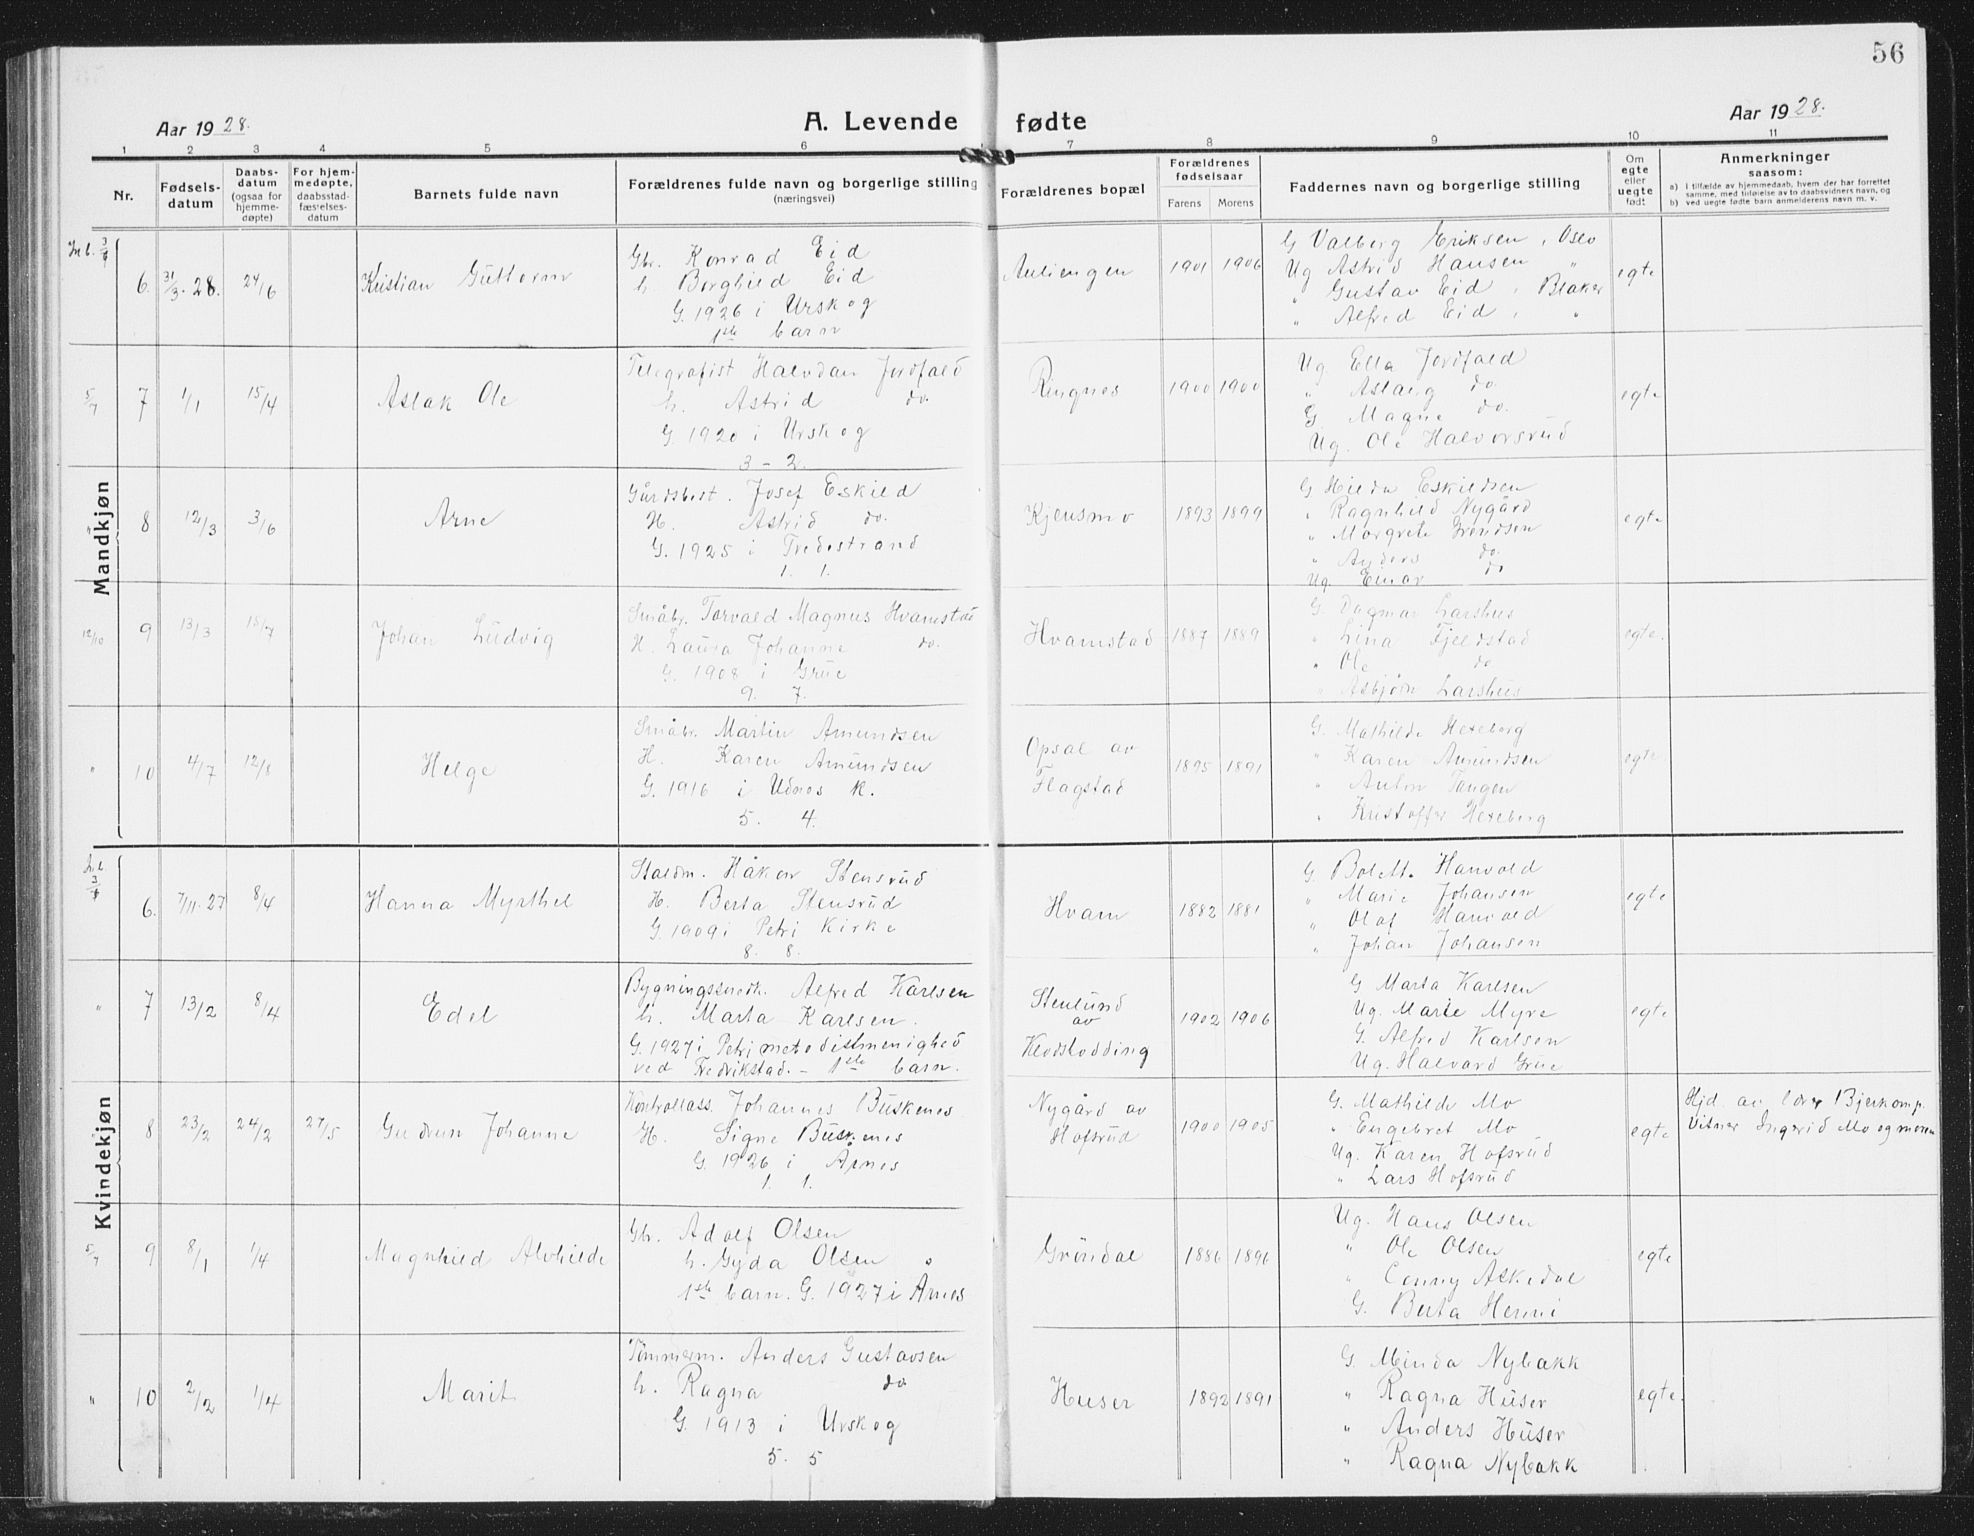 56
Aar 1928.
A. Levende fødte
Aar 1928.
1 2 3 4 5 6 7 8 9 10 11
Nr.
Fødsels-
datum
Daabs-
datum
(ogsaa for
hjemme-
døpte)
For hjem-
medøpte,
daabsstad-
fæstelses-
datum
Barnets fulde navn
Forældrenes fulde navn og borgerlige stilling
(næringsvei)
Forældrenes bopæl
Forældrenes
fødselsaar
Farens Morens
Faddernes navn og borgerlige stilling
Om
egte
eller
uegte
født
Anmerkninger
saasom:
a) I tilfælde av hjemmedaab, hvem der har forrettet
samme, med tilføielse av to daabsvidners navn, og
b) ved uegte fødte barn anmelderens navn m. v.
Mandkjøn
6. 31/3-28. 24/6 Kristian Guttorm
Gbr. Konrad Eid
h. Borghild Eid
G. 1926 i Urskog
1ste barn
Auliengen 1901 1906
G Valborg Eriksen, Oslo
Ug Astrid Hansen "
" Gustav Eid, Blaker
" Alfred Eid, "
egte
5/7 7 1/1 15/4 Aslak Ole
Telegrafist Halvdan Jordfald
h. Astrid do.
G. 1920 i Urskog
3 - 2.
Ringnes 1900 1900
Ug Ella Jordfald
" Aslaug do.
G. Magne do.
Ug. Ole Halvorsrud
egte
" 8 12/3 3/6 Arne
Gårdsbest. Josef Eskild
H. Astrid do.
G. 1925 i Tvedestrand
1. 1.
Kjensmo 1893 1899
G Hilda Eskildsen
" Ragnhild Nygård
" Margrete Svendsen
" Anders do.
Ug. Einar do
egte
12/10 9 13/3 15/7 Johan Ludvig
Småbr. Torvald Magnus Hvamstad
H. Laura Johanne do.
G. 1908 i Grue
9. 7.
Hvamstad 1887 1889
G. Dagmar Larshus
" Lina Fjeldstad
" Ole do
" Asbjørn Larshus
egte.
" 10 4/7 12/8 Helge
Småbr. Martin Amundsen
H. Karen Amundsen
G. 1916 i Udnes K.
5. 4.
Opsal av
Flagstad
1895 1891
G. Mathilde Hexeberg
" Karen Amundsen
" Anton Tangen
" Kristoffer Hexeberg
egte
Kvindekjøn
6. 7/11-27 8/4 Hanna Myrthel
Staldm. Håkon Stensrud
H. Berta Stensrud
G. 1909 i Petri Kirke
8. 8.
Hvam 1882 1881
G. Bolette Hanvold
" Marie Johansen
" Olaf Hanvold
" Johan Johansen
egte
" 7 13/2 8/4 Edel
Bygningssnedk. Alfred Karlsen
h. Marta Karlsen.
G. 1927 i Petri metodistmenighed
ved Fredrikstad. - 1ste barn.
Stenlund
av
Klodstodding
1902 1906
G Marta Karlsen
Ug. Marie Myre
G. Alfred Karlsen
Ug. Halvard Grue
egte
8 23/2 24/2 27/5 Gudrun Johanne
Kontrollass. Johannes Buskenes
H. Signe Buskenes
G. 1926 i Årnes
1. 1.
Nygård av
Hofsrud
1900 1905
G. Mathilde Mo
" Engebret Mo
Ug. Karen Hofsrud
" Lars Hofsrud
egte
Hjd. av lærer Bjerkomp.
Vitner Ingerid Mo og moren
5/7 9 8/1 1/4 Magnhild Alvhilde
Gbr. Adolf Olsen
h. Gyda Olsen
1ste barn. G. 1927 i Årnes
Gröndal 1886 1896
Ug. Hans Olsen
" Ole Olsen
" Conny Askedal
G. Berta Henni
egte
" 10 2/2 1/4 Marit
Tömmerm. Anders Gustavsen
h. Ragna do
G. 1913 i Urskog
5. 5
Huser 1892 1891
G. Minda Nybakk
" Ragna Huser
" Anders Huser
" Ragna Nybakk
egte.